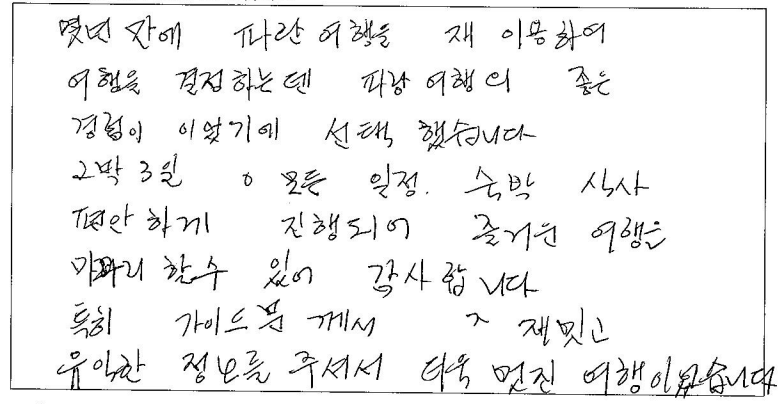 몇년 만에 파란 여행을 재 이용하여
여행을 결정하는덴 파랑 여행의 좋은
경험이 이었기에 선택 했습니다
2박 3일 모든 일정. 숙박 식사
편안하게 진행되어 즐거운 여행을
마무리 할수 있어 감사합니다
특히 가이드분 께서 재밋고
유익한 정보를 주셔서 더욱 멋진 여행이었습니다